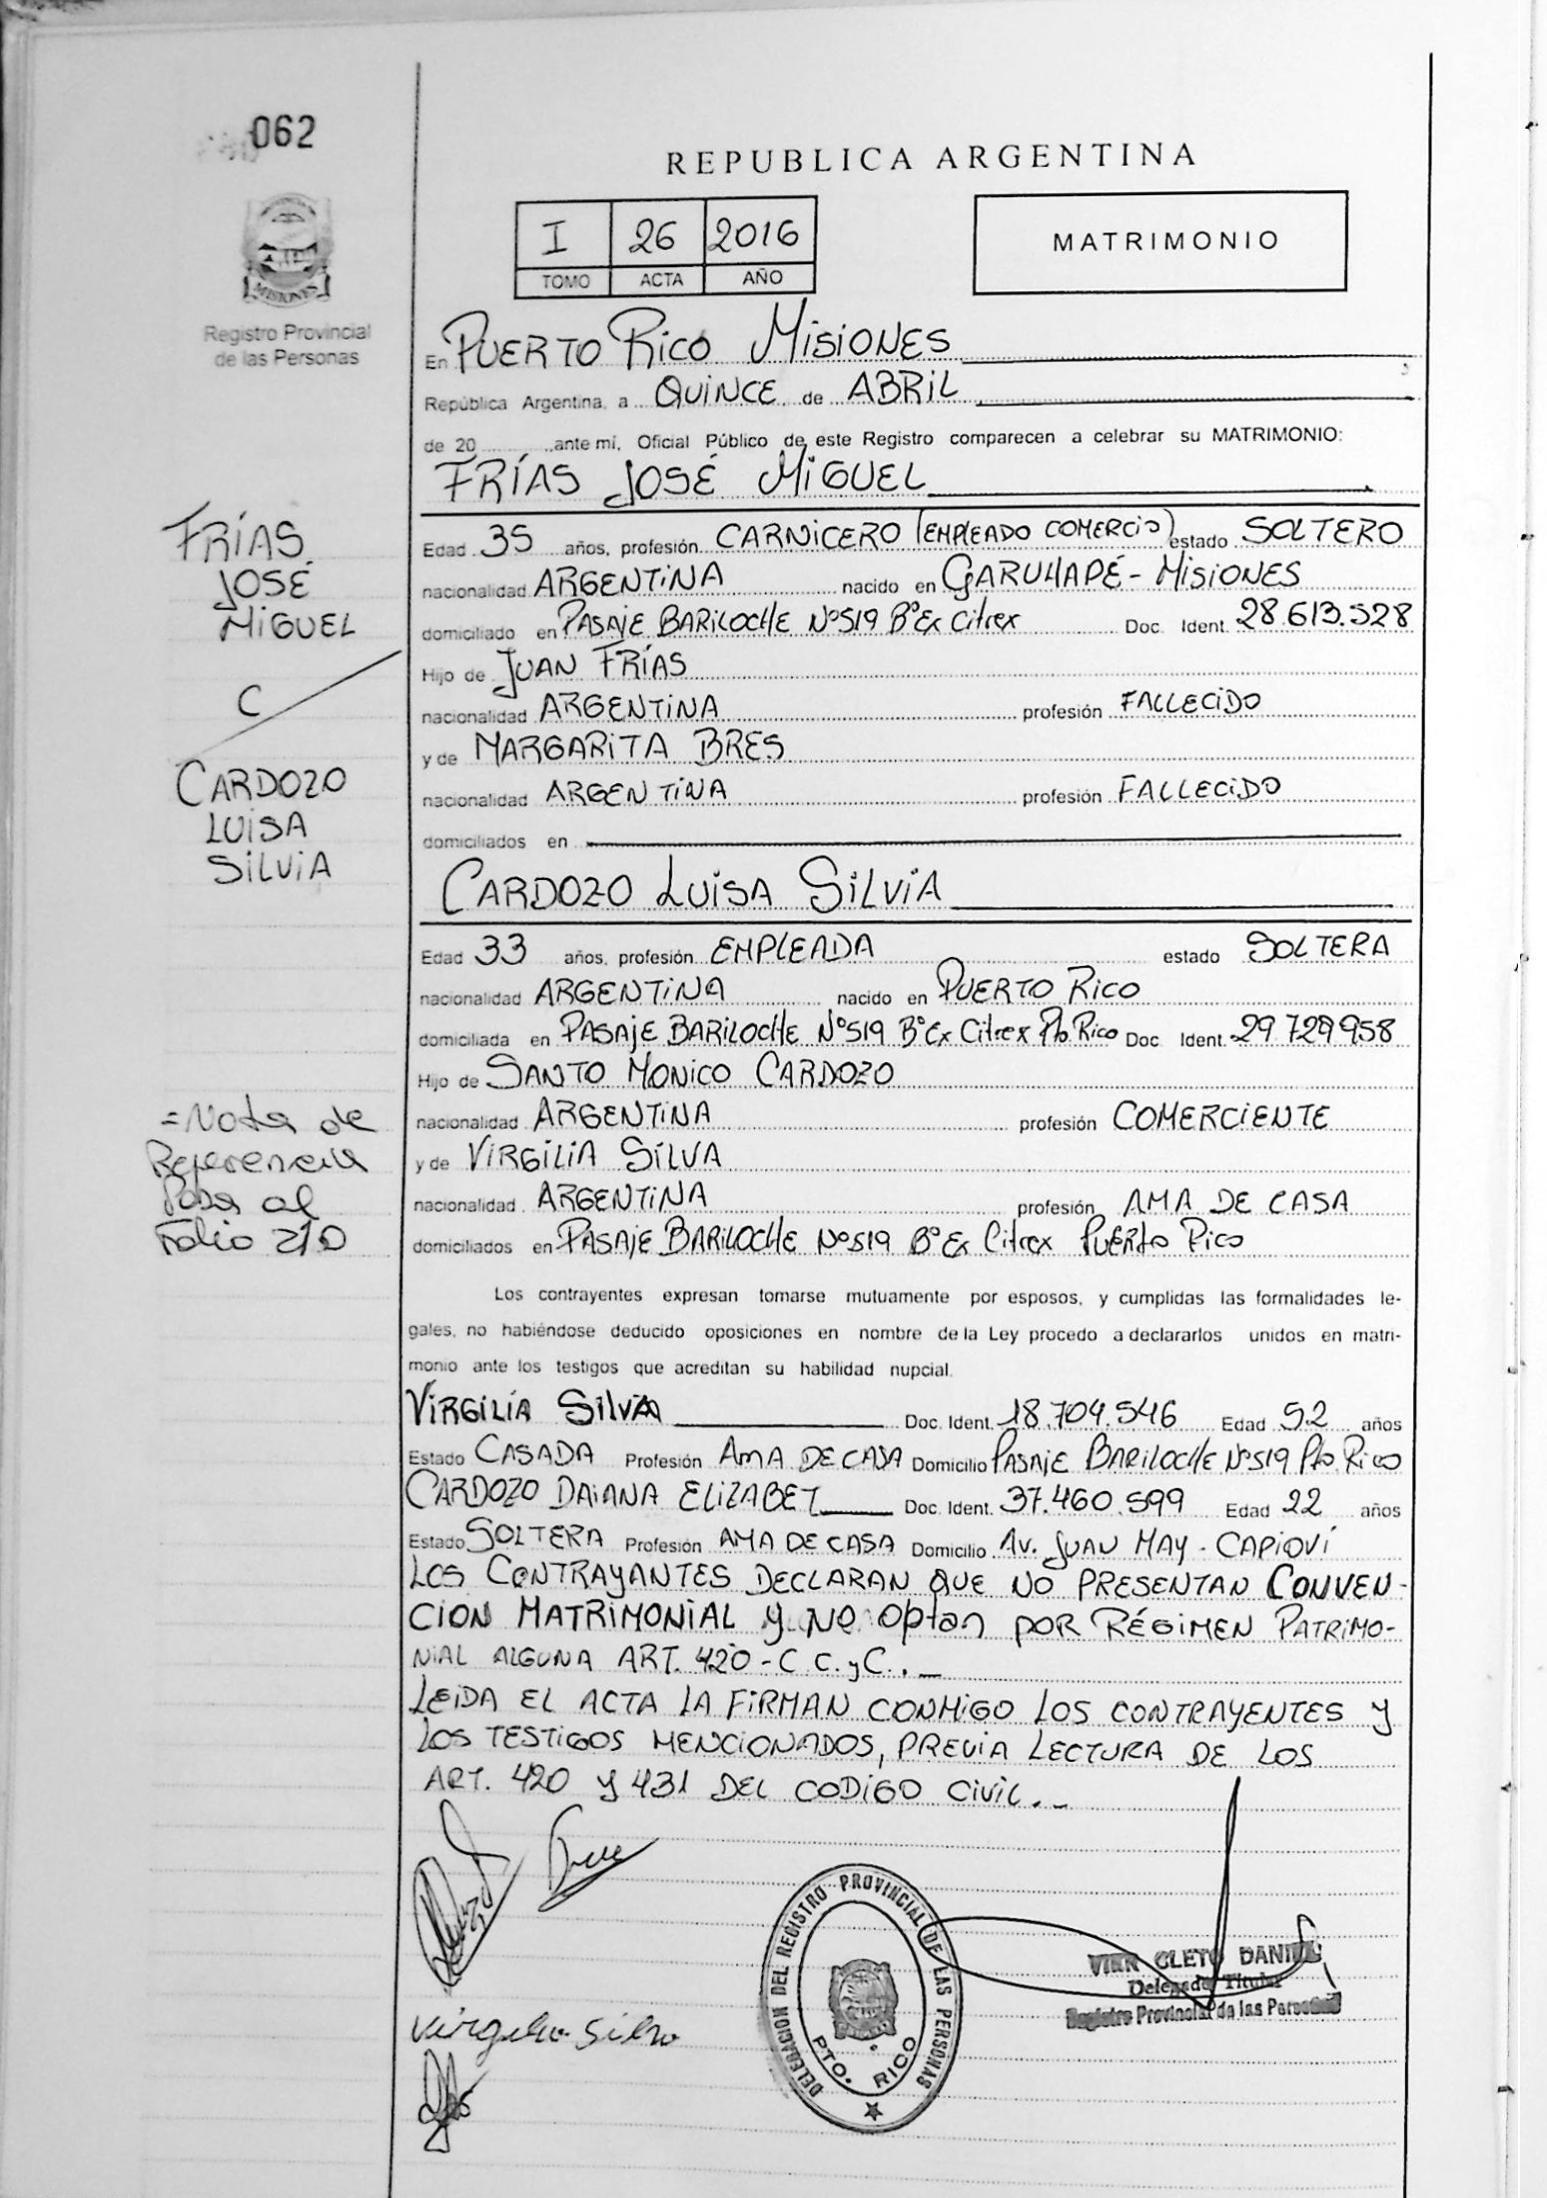 062
MISIONES
Registro Provincial
de las Personas
REPUBLICA ARGENTINA
I 26 2016
TOMO ACTA AÑO
MATRIMONIO
En PUERTO RICO MISIONES
República Argentina, a QUINCE de ABRIL
de 20 ante mí, Oficial Público de este Registro comparecen a celebrar su MATRIMONIO:
FRÍAS JOSÉ MIGUEL
FRÍAS
JOSÉ
MIGUEL
C
CARDOZO
LUISA
SILVIA
Edad 35 años, profesión CARNICERO (EMPLEADO COMERCIO) estado SOLTERO
nacionalidad ARGENTINA nacido en GARUHAPÉ - MISIONES
domiciliado en PASAJE BARILOCHE Nº519 Bº Ex Citrex Doc. Ident. 28.613.528
Hijo de JUAN FRÍAS
nacionalidad ARGENTINA profesión FALLECIDO
y de MARGARITA BRES
nacionalidad ARGENTINA profesión FALLECIDO
domiciliados en
CARDOZO LUISA SILVIA
Edad 33 años, profesión EMPLEADA estado SOLTERA
nacionalidad ARGENTINA nacido en PUERTO RICO
domiciliada en PASAJE BARILOCHE Nº519 Bº Ex Citrex Pto. Rico Doc. Ident. 29.729.958
Hijo de SANTO MONICO CARDOZO
nacionalidad ARGENTINA profesión COMERCIENTE
y de VIRGILIA SILVA
nacionalidad ARGENTINA profesión AMA DE CASA
domiciliados en PASAJE BARILOCHE Nº519 Bº Ex Citrex PUERTO RICO
=Nota de
Referencia
Pasa al
Folio 210
Los contrayentes expresan tomarse mutuamente por esposos, y cumplidas las formalidades le-
gales, no habiéndose deducido oposiciones en nombre de la Ley procedo a declararlos unidos en matri-
monio ante los testigos que acreditan su habilidad nupcial.
VIRGILIA SILVA Doc. Ident. 18.704.546 Edad 52 años
Estado CASADA Profesión AMA DE CASA Domicilio PASAJE BARILOCHE Nº519 Pto. Rico
CARDOZO DAIANA ELIZABET Doc. Ident. 37.460.599 Edad 22 años
Estado SOLTERA Profesión AMA DE CASA Domicilio Av. JUAN MAY - CAPIOVÍ
LOS CONTRAYANTES DECLARAN QUE NO PRESENTAN CONVEN-
CION MATRIMONIAL y NO optan POR RÉGIMEN PATRIMO-
NIAL ALGUNA ART. 420 - C.C.yC..-
LEIDA EL ACTA LA FIRMAN CONMIGO LOS CONTRAYENTES y
LOS TESTIGOS MENCIONADOS, PREVIA LECTURA DE LOS
ART. 420 y 431 DEL CODIGO CIVIL.-
Virgilia Silva
DELEGACION DEL REGISTRO PROVINCIAL DE LAS PERSONAS
PTO. RICO
CLETO DANIEL
Delegado Titular
Registro Provincial de las Personas